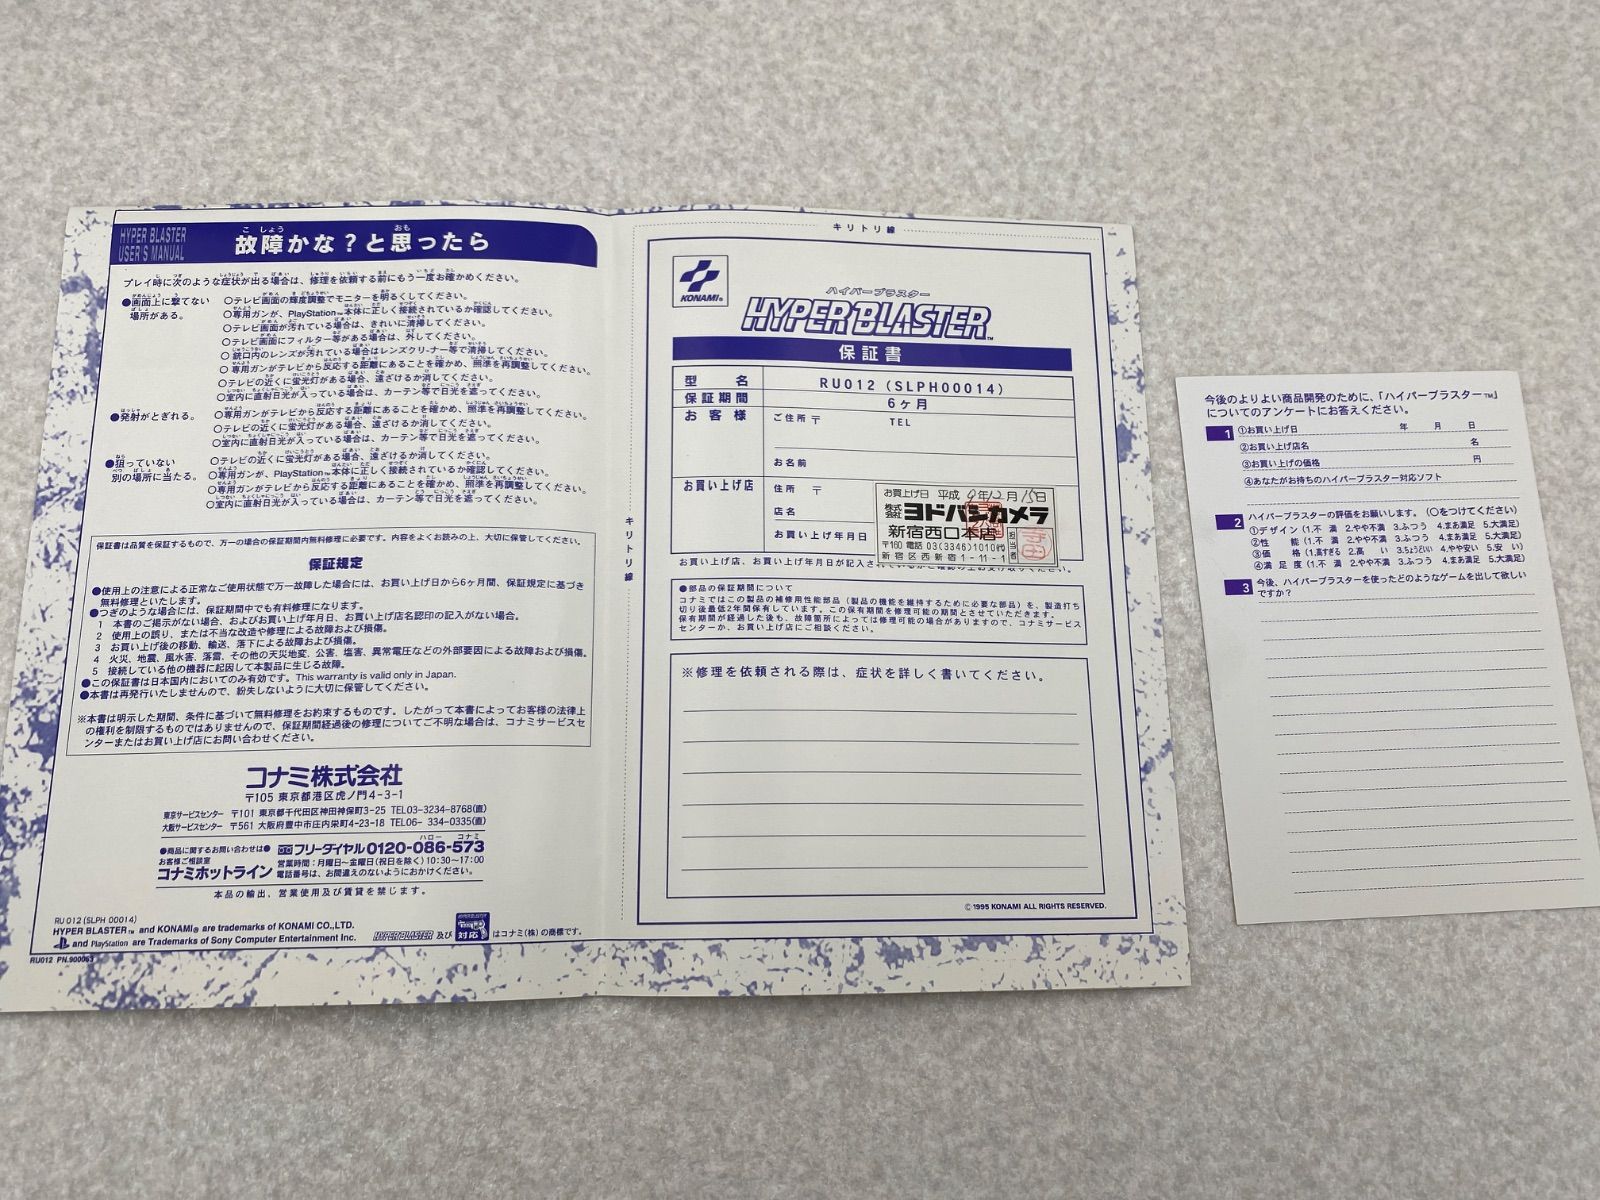 HYPER BLASTER
USER'S MANUAL
故障かな？と思ったら
プレイ時に次のような症状が出る場合は、修理を依頼する前にもう一度お確かめください。
●画面上に撃てない場所がある。
○テレビ画面の輝度調整でモニターを明るくしてください。
○専用ガンが、PlayStation™本体に正しく接続されているか確認してください。
○テレビ画面が汚れている場合は、きれいに清掃してください。
○テレビ画面にフィルター等がある場合は、外してください。
○銃口内のレンズが汚れている場合はレンズクリーナー等で清掃してください。
○専用ガンがテレビから反応する距離にあることを確かめ、照準を再調整してください。
○テレビの近くに蛍光灯がある場合、遠ざけるか消してください。
○室内に直射日光が入っている場合は、カーテン等で日光を遮ってください。
●発射がとぎれる。
○専用ガンがテレビから反応する距離にあることを確かめ、照準を再調整してください。
○テレビの近くに蛍光灯がある場合、遠ざけるか消してください。
○室内に直射日光が入っている場合は、カーテン等で日光を遮ってください。
●狙っていない別の場所に当たる。
○テレビの近くに蛍光灯がある場合、遠ざけるか消してください。
○専用ガンが、PlayStation™本体に正しく接続されているか確認してください。
○専用ガンがテレビから反応する距離にあることを確かめ、照準を再調整してください。
○室内に直射日光が入っている場合は、カーテン等で日光を遮ってください。
保証書は品質を保証するもので、万一の場合の保証期間内無料修理に必要です。内容をよくお読みの上、大切に保管してください。
保証規定
●使用上の注意による正常なご使用状態で万一故障した場合には、お買い上げ日から6ヶ月間、保証規定に基づき
無料修理といたします。
●つぎのような場合には、保証期間中でも有料修理になります。
1 本書のご掲示がない場合、およびお買い上げ年月日、お買い上げ店名認印の記入がない場合。
2 使用上の誤り、または不当な改造や修理による故障および損傷。
3 お買い上げ後の移動、輸送、落下による故障および損傷。
4 火災、地震、風水害、落雷、その他の天災地変、公害、塩害、異常電圧などの外部要因による故障および損傷。
5 接続している他の機器に起因して本製品に生じる故障。
●この保証書は日本国内においてのみ有効です。This warranty is valid only in Japan.
●本書は再発行いたしませんので、紛失しないように大切に保管してください。
※本書は明示した期間、条件に基づいて無料修理をお約束するものです。したがって本書によってお客様の法律上
の権利を制限するものではありませんので、保証期間経過後の修理についてご不明な場合は、コナミサービスセ
ンターまたはお買い上げ店にお問い合わせください。
コナミ株式会社
〒105 東京都港区虎ノ門4-3-1
東京サービスセンター 〒101 東京都千代田区神田神保町3-25 TEL03-3234-8768(直)
大阪サービスセンター 〒561 大阪府豊中市庄内栄町4-23-18 TEL06- 334-0335(直)
●商品に関するお問い合わせは●
お客様ご相談室
コナミホットライン
ハロー コナミ
フリーダイヤル0120-086-573
営業時間：月曜日〜金曜日(祝日を除く)10:30〜17:00
電話番号は、お間違えのないようにおかけください。
本品の輸出、営業使用及び賃貸を禁じます。
RU012 (SLPH 00014)
HYPER BLASTER™ and KONAMI® are trademarks of KONAMI CO.,LTD.
and PlayStation are Trademarks of Sony Computer Entertainment Inc.
HYPER BLASTER 及び HYPER BLASTER 対応 はコナミ(株)の商標です。
RU012 PN.900063
キリトリ線
キリトリ線
KONAMI®
ハイパーブラスター
HYPER BLASTER™
保証書
型名 RU012 (SLPH00014)
保証期間 6ヶ月
お客様 ご住所 〒
TEL
お名前
お買い上げ店 住所 〒
店名
お買い上げ年月日
お買上げ日 平成9年12月15日
株式会社 ヨドバシカメラ
新宿西口本店
〒160 電話 03(3346)1010(代)
新宿区西新宿1-11-1
担当者
お買い上げ店、お買い上げ年月日が記入されているか
●部品の保証期間について
コナミではこの製品の補修用性能部品（製品の機能を維持するために必要な部品）を、製造打ち
切り後最低2年間保有しています。この保有期間を修理可能の期間とさせていただきます
保有期間が経過した後も、故障箇所によっては修理可能の場合がありますので、コナミサービス
センターか、お買い上げ店にご相談ください。
※修理を依頼される際は、症状を詳しく書いてください。
© 1995 KONAMI ALL RIGHTS RESERVED.
今後のよりよい商品開発のために、「ハイパーブラスター™」
についてのアンケートにお答えください。
1 ①お買い上げ日 年 月 日
②お買い上げ店名 名
③お買い上げの価格 円
④あなたがお持ちのハイパーブラスター対応ソフト
2 ハイパーブラスターの評価をお願いします。(○をつけてください)
①デザイン (1.不満 2.やや不満 3.ふつう 4.まあ満足 5.大満足)
②性能 (1.不満 2.やや不満 3.ふつう 4.まあ満足 5.大満足)
③価格 (1.高すぎる 2.高い 3.ちょうどいい 4.やや安い 5.安い)
④満足度 (1.不満 2.やや不満 3.ふつう 4.まあ満足 5.大満足)
3 今後、ハイパーブラスターを使ったどのようなゲームを出して欲しい
ですか？